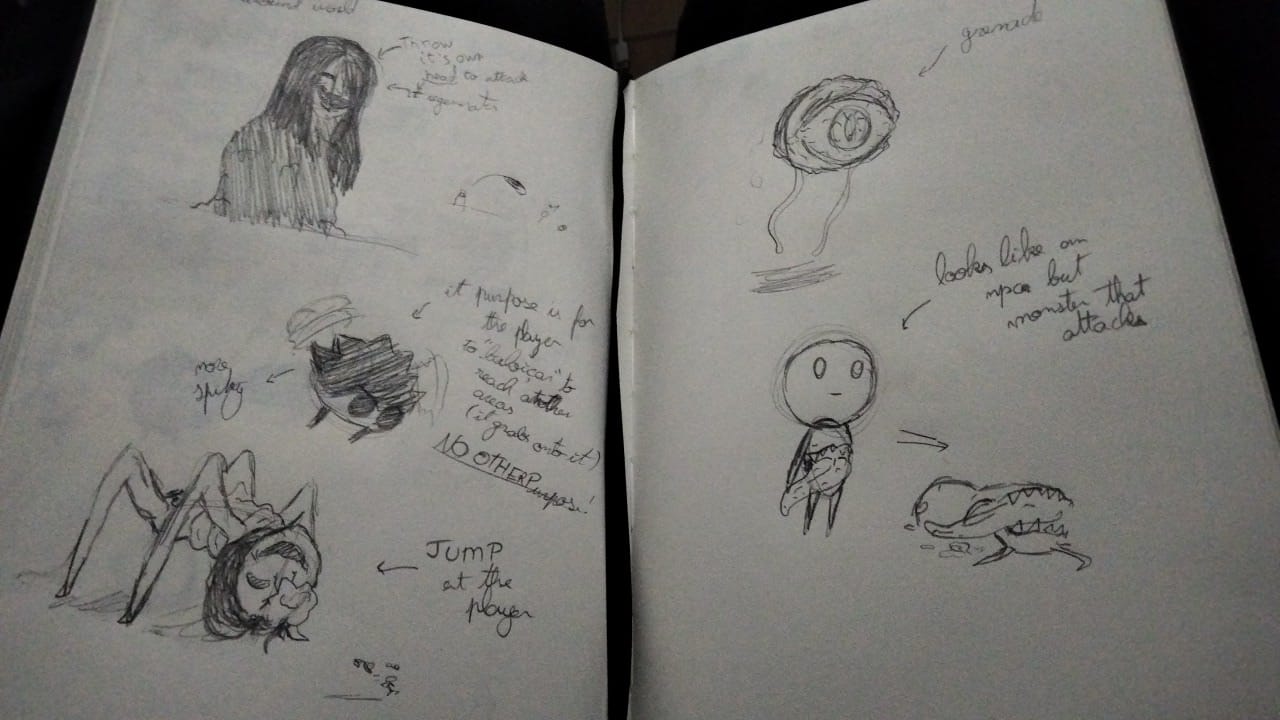 world
Throw
it's own
head to attack
it
it purpose is for
the player
to "baloicar" to
reach another
areas
(it grabs onto it)
NO OTHER Purpose!
more
spiky
JUMP
at the
player
grenade
looks like an
npc but
monster that
attacks